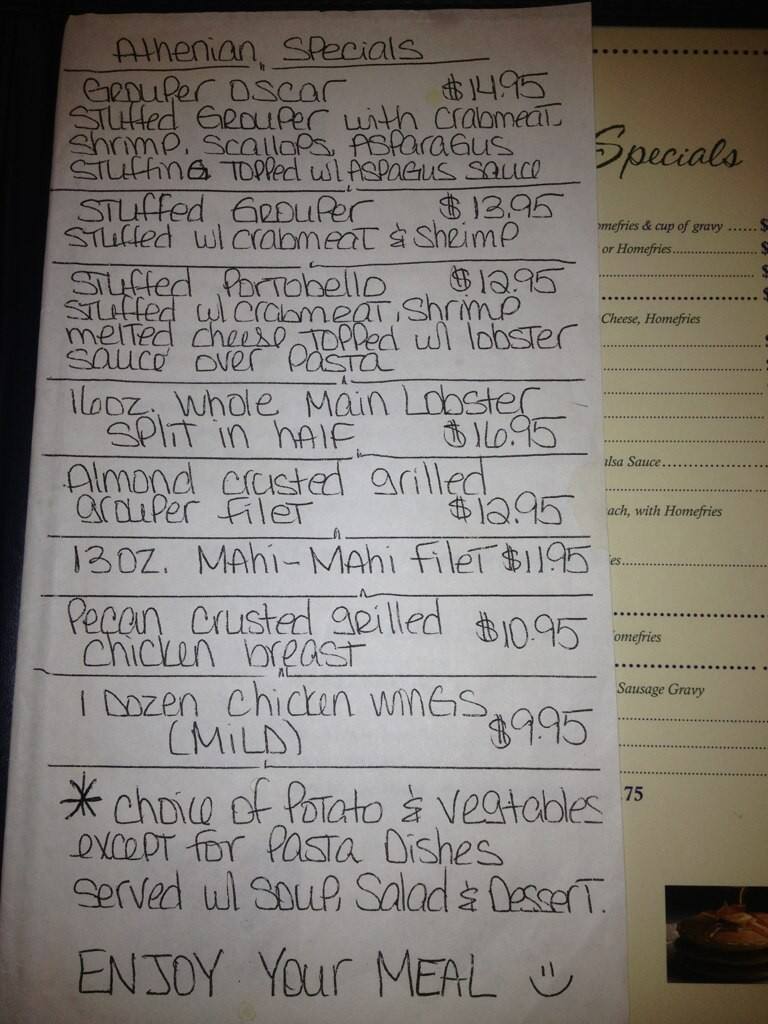 Athenian Specials
Grouper Oscar $14.95
Stuffed Grouper with crabmeat,
Shrimp, Scallops, Asparagus
Stuffing Topped w/ Aspagus sauce
Stuffed Grouper $13.95
Stuffed w/ crabmeat & Shrimp
Stuffed Portobello $12.95
Stuffed w/ crabmeat, Shrimp
melted cheese, topped w/ lobster
sauce over Pasta
16oz. Whole Main Lobster
Split in half $16.95
Almond crusted grilled
grouper filet $12.95
13 oz. Mahi-Mahi filet $11.95
Pecan crusted grilled
chicken breast $10.95
1 Dozen Chicken Wings
(Mild) $9.95
* choice of Potato & Vegtables
except for Pasta Dishes
served w/ Soup, Salad & Dessert.
ENJOY Your MEAL
Specials
mefries & cup of gravy ...... $
or Homefries
$
$
Cheese, Homefries
$
alsa Sauce
ach, with Homefries
es
omefries
Sausage Gravy
75